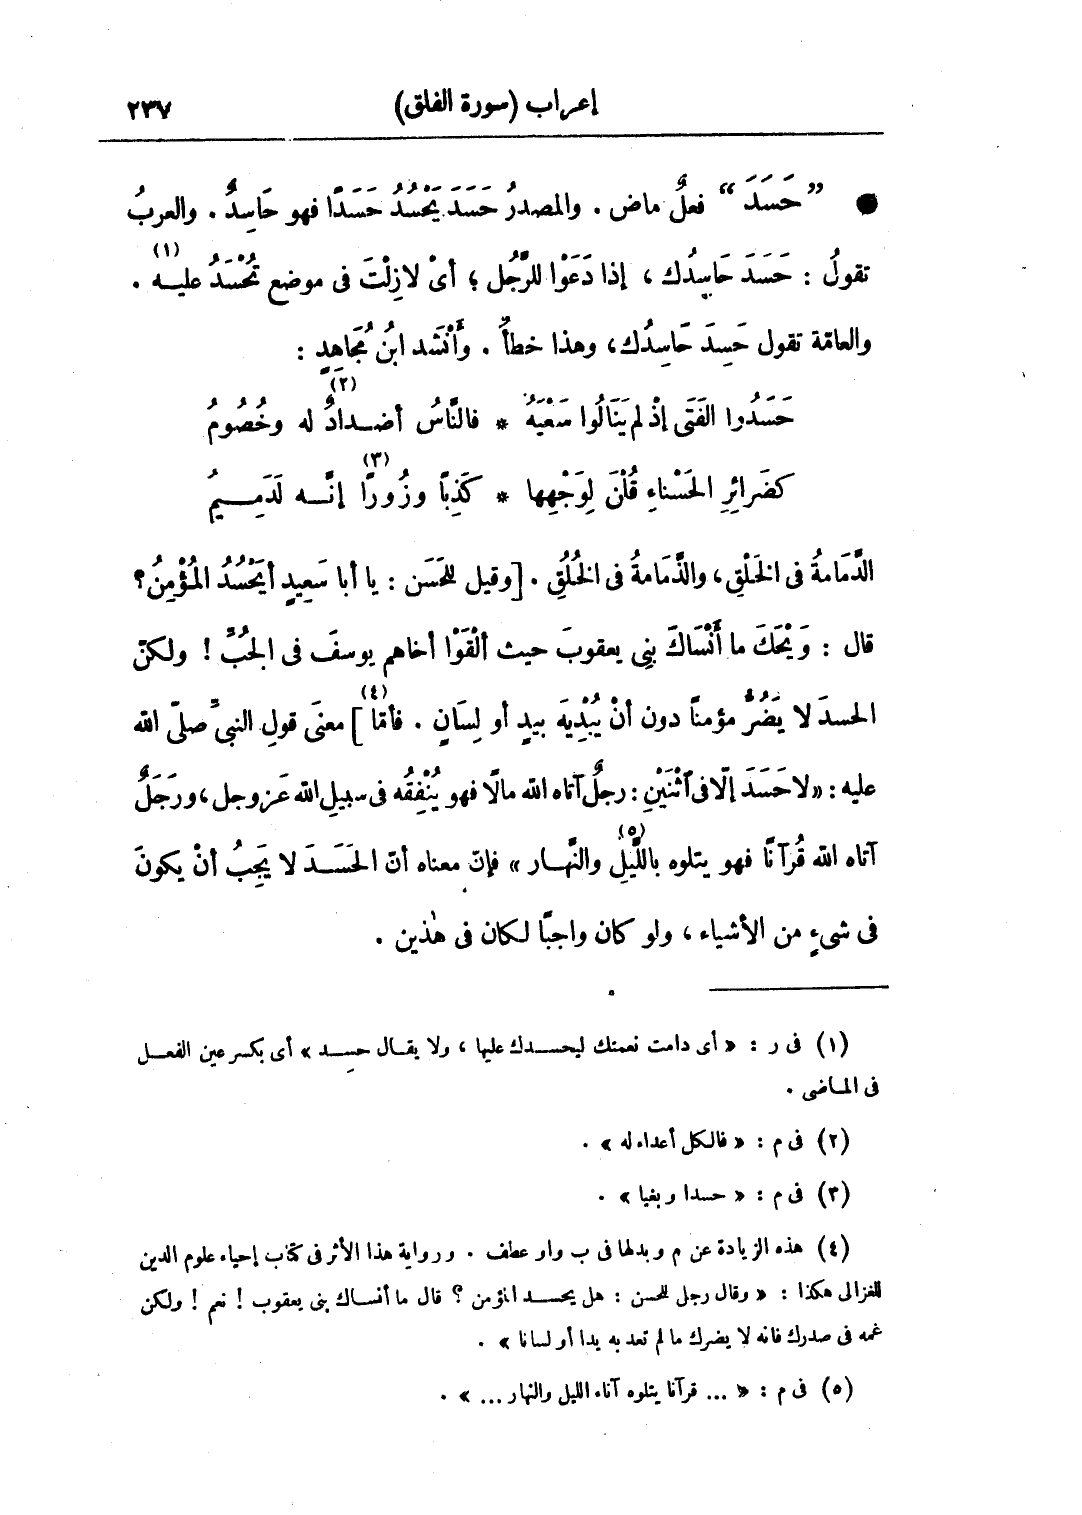 إعراب (سورة الفلق) ٢٣٧
● ”حَسَدَ“ فعلٌ ماض . والمصدرُ حَسَدَ يَحْسُدُ حَسَدًا فهو حَاسِدٌ . والعربُ
تقولُ : حَسَدَ حَاسِدُك ، إذا دَعَوْا للرَّجُل ؛ أىْ لا زِلْتَ فى موضع تُحْسَدُ عليه (١) .
والعامّة تقول حَسِدَ حَاسِدُك ، وهذا خطأٌ . وأَنْشَد ابنُ مُجَاهِدٍ :
حَسَدُوا الفَتَى إذْ لم يَنَالُوا سَعْيَهُ * فالنَّاسُ أضدادٌ (٢) له وخُصُومُ
كضَرائِرِ الحَسْناءِ قُلْنَ لِوَجْهِها * كَذِبًا وزُورًا (٣) إنَّه لَدَمِيمُ
الدَّمَامةُ فى الخَلْقِ ، والذَّمَامةُ فى الخُلُقِ . [وقيل للحَسَن : يا أبا سَعِيدٍ أيَحْسُدُ المُؤْمِنُ ؟
قال : وَيْحَكَ ما أَنْسَاكَ بَنِى يعقوبَ حيث ألْقَوْا أخاهم يوسفَ فى الجُبِّ ! ولكنّ
الحسدَ لا يَضُرُّ مؤمنًا دون أنْ يُبْدِيَه بيدٍ أو لِسَانٍ . فأمّا (٤)] معنَى قولِ النبىِّ صلّى الله
عليه : «لا حَسَدَ إلّا فى ٱثْنَيْنِ : رجلٌ آتاه الله مالًا فهو يُنْفِقُه فى سبيلِ الله عَزوجل ، ورَجَلٌ
آتاه الله قُرآنًا فهو يتلوه باللَّيلِ (٥) والنَّهار » فإنّ معناه أنّ الحَسَدَ لا يَجِبُ أنْ يكونَ
فى شىءٍ من الأشياء ، ولو كان واجبًا لكان فى هٰذين .
(١) فى ر : « أى دامت نعمتك ليحسدك عليها ، ولا يقال حسِد » أى بكسر عين الفعل
فى الماضى .
(٢) فى م : « فالكل أعداء له » .
(٣) فى م : « حسدا وبغيا » .
(٤) هذه الزيادة عن م وبدلها فى ب واو عطف . ورواية هذا الأثر فى كتاب إحياء علوم الدين
للغزالى هكذا : « وقال رجل للحسن : هل يحسد المؤمن ؟ قال ما أنساك بنى يعقوب ! نعم ! ولكن
غمه فى صدرك فانه لا يضرك ما لم تعد به يدا أو لسانا » .
(٥) فى م : « ... قرآنا يتلوه آناء الليل والنهار ... » .